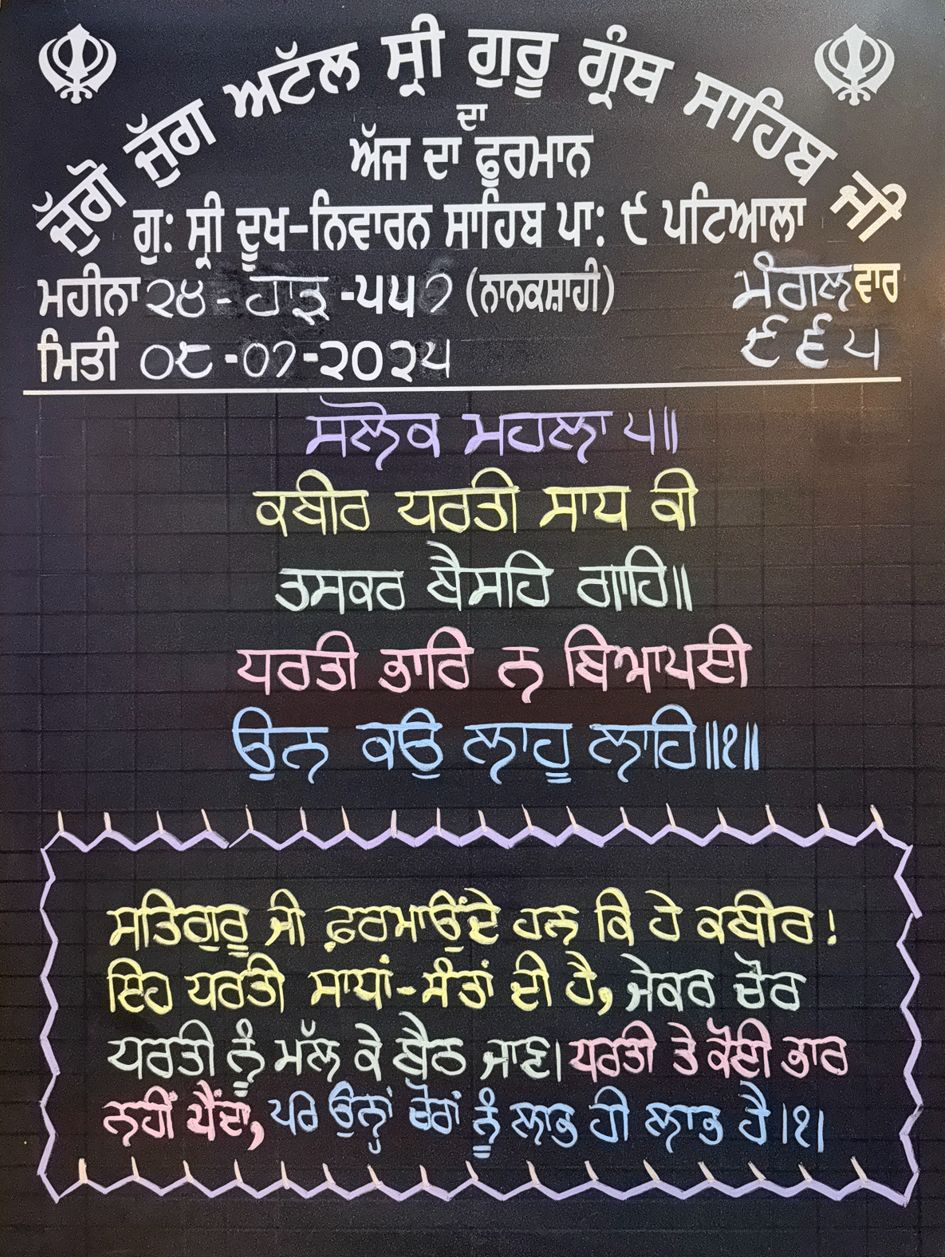 ਜੁੱਗੋ ਜੁੱਗ ਅਟੱਲ ਸ੍ਰੀ ਗੁਰੂ ਗ੍ਰੰਥ ਸਾਹਿਬ ਜੀ
ਦਾ
ਅੱਜ ਦਾ ਫੁਰਮਾਨ
ਗੁ: ਸ੍ਰੀ ਦੂਖ-ਨਿਵਾਰਨ ਸਾਹਿਬ ਪਾ: ੯ ਪਟਿਆਲਾ
ਮਹੀਨਾ ੨੪-ਹਾੜ-੫੫੭ (ਨਾਨਕਸ਼ਾਹੀ) ਮੰਗਲਵਾਰ
ਮਿਤੀ ੦੮-੦੭-੨੦੨੫ ੯੬੫
ਸਲੋਕ ਮਹਲਾ ੫॥
ਕਬੀਰ ਧਰਤੀ ਸਾਧ ਕੀ
ਤਸਕਰ ਬੈਸਹਿ ਗਾਹਿ॥
ਧਰਤੀ ਭਾਰਿ ਨ ਬਿਆਪਈ
ਉਨ ਕਉ ਲਾਹੂ ਲਾਹਿ॥੧॥
ਸਤਿਗੁਰੂ ਜੀ ਫ਼ਰਮਾਉਂਦੇ ਹਨ ਕਿ ਹੇ ਕਬੀਰ!
ਇਹ ਧਰਤੀ ਸਾਧਾਂ-ਸੰਤਾਂ ਦੀ ਹੈ, ਜੇਕਰ ਚੋਰ
ਧਰਤੀ ਨੂੰ ਮੱਲ ਕੇ ਬੈਠ ਜਾਣ। ਧਰਤੀ ਤੇ ਕੋਈ ਭਾਰ
ਨਹੀਂ ਪੈਂਦਾ, ਪਰ ਉਨ੍ਹਾਂ ਚੋਰਾਂ ਨੂੰ ਲਾਭ ਹੀ ਲਾਭ ਹੈ।੧।